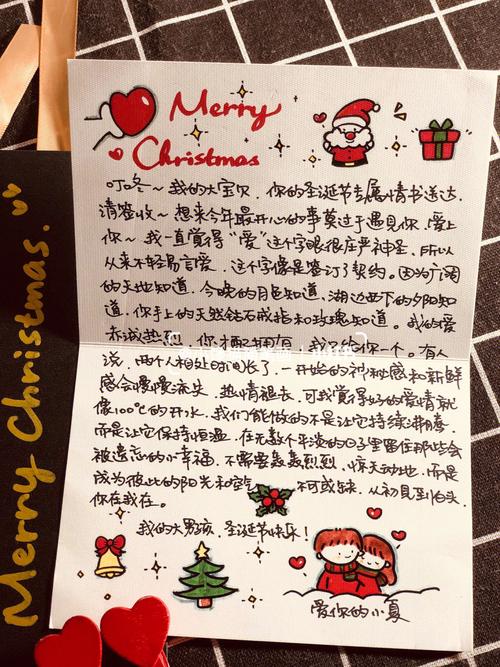 Merry
Christmas
叮咚～我的大宝贝，你的圣诞节专属情书送达，
请签收～想来今年最开心的事莫过于遇见你，爱上
你～我一直觉得“爱”这个字眼很庄严神圣，所以
从来不轻易言爱，这个字像是签订了契约。因为广阔
的天地知道，今晚的月色知道，湖边西下的夕阳知
道，你手上的天然钻石戒指和玫瑰知道。我的爱
赤诚热烈，你才配拥有，我只给你一个。有人
说，两个人相处时间长了，一开始的神秘感和新鲜
感会慢慢流失，热情褪去，可我觉得好的爱情就
像100℃的开水，我们能做的不是让它持续沸腾，
而是让它保持恒温，在无数个平淡的日子里留住那些会
被遗忘的小幸福，不需要轰轰烈烈，惊天动地，而是
成为彼此的阳光和 不可或缺，从初见到白头，
你在我在。
我的大男孩，圣诞节快乐！
爱你的小夏
Merry Christmas.